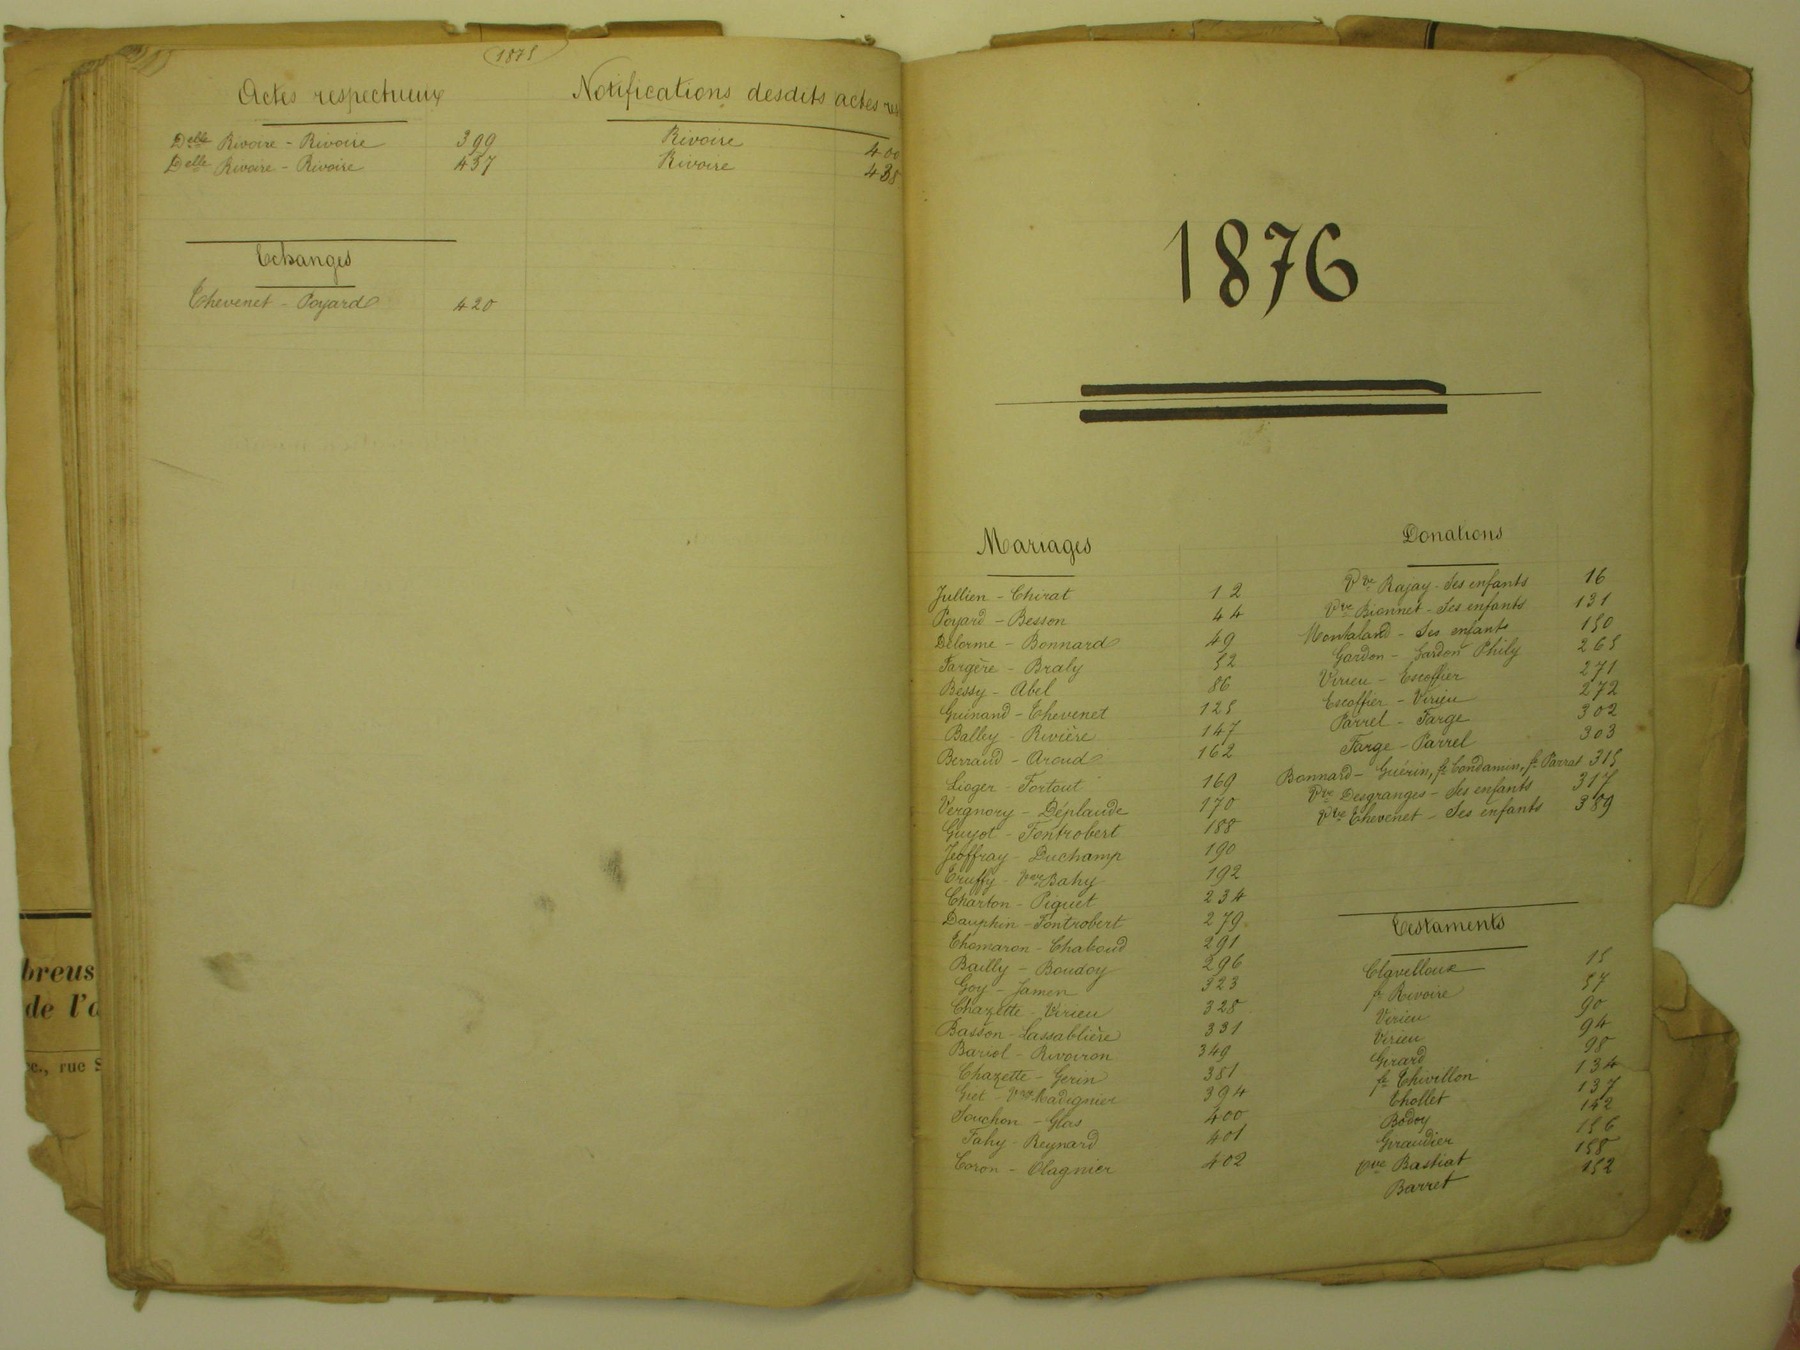 1875
Actes respectueux
Delle Rivoire - Rivoire 399
Delle Rivoire - Rivoire 437
Notifications desdits actes res
Rivoire 400
Rivoire 438
Echanges
Thevenet - Poyard 420
breus
de l'a
ce., rue S
1876
Mariages
Jullien - Chirat 12
Poyard - Besson 44
Delorme - Bonnard 49
Fargère - Braly 52
Bessy - Abel 86
Guinand - Thevenet 125
Balley - Rivière 147
Berraud - Aroud 162
Lioger - Fortout 169
Vergnory - Déplaude 170
Guyot - Fontrobert 188
Jeoffray - Duchamp 190
Truffy - Vve Bahy 192
Charton - Piquet 234
Dauphin - Fontrobert 279
Thomaron - Chaboud 291
Bailly - Boudoy 296
Goy - Jamen 323
Chazette - Virieu 328
Basson - Lassablière 331
Bariol - Rivoiron 349
Chazette - Gerin 381
Giet - Vve Madignier 394
Souchon - Glas 400
Fahy - Reynard 401
Coron - Olagnier 402
Donations
Vve Rajay - Ses enfants 16
Vve Bionnet - Ses enfants 131
Montaland - Ses enfants 150
Gardon - Gardon Phily 265
Virieu - Escoffier 271
Escoffier - Virieu 272
Parrel - Farge 302
Farge - Parrel 303
Bonnard - Guérin, fe Condamin, fe Parrat 315
Vve Desgranges - Ses enfants 317
Vve Thevenet - Ses enfants 389
Testaments
Clavelloux 15
fe Rivoire 57
Virieu 90
Virieu 94
Gerard 98
fe Thivillon 134
Thollet 137
Bodoy 142
Giraudier 156
Vve Bastiat 158
Barret 152